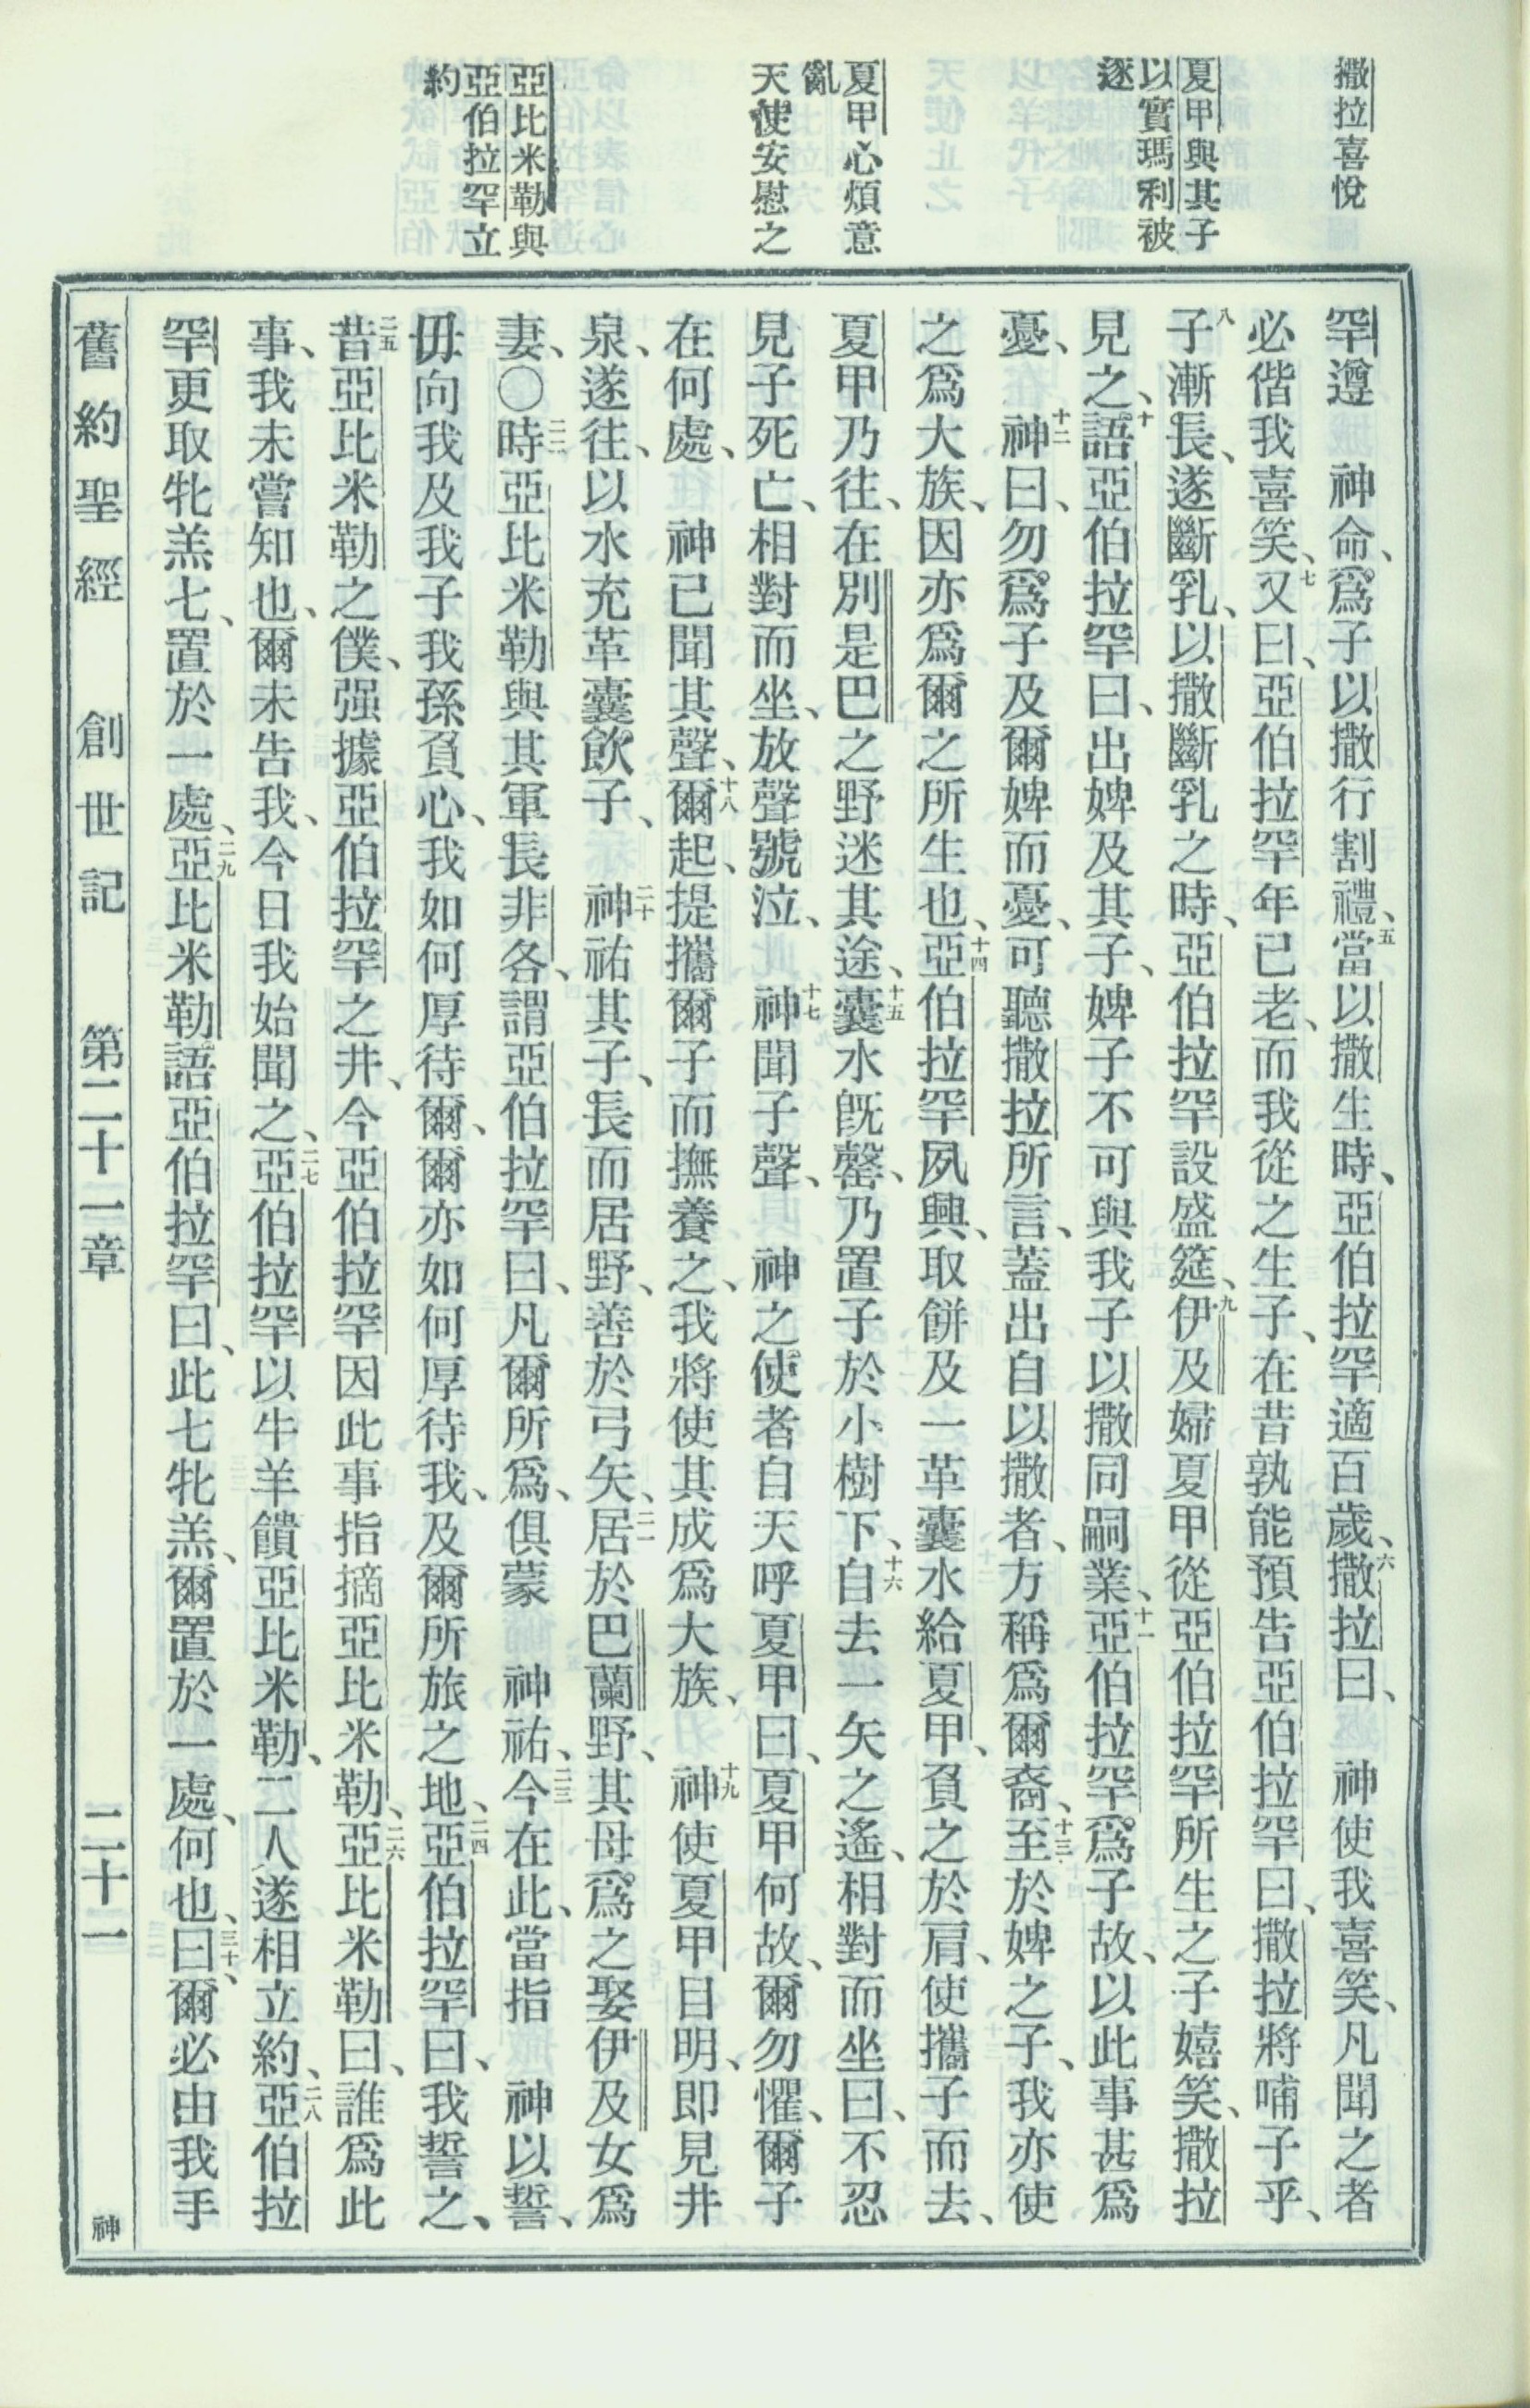 撒拉喜悅
夏甲與其子
以實瑪利被
逐
夏甲心煩意
亂
天使安慰之
亞比米勒與
亞伯拉罕立
約
罕遵　神命、爲子以撒行割禮、五當以撒生時、亞伯拉罕適百歲、六撒拉曰、　神使我喜笑、凡聞之者
必偕我喜笑、七又曰、亞伯拉罕年已老、而我從之生子、在昔孰能預告亞伯拉罕曰、撒拉將哺子乎、
八子漸長、遂斷乳、以撒斷乳之時、亞伯拉罕設盛筵、九伊及婦夏甲從亞伯拉罕所生之子嬉笑、撒拉
見之、十語亞伯拉罕曰、出婢及其子、婢子不可與我子以撒同嗣業、十一亞伯拉罕爲子故、以此事甚爲
憂、十二神曰、勿爲子及爾婢而憂、可聽撒拉所言、蓋出自以撒者、方稱爲爾裔、十三至於婢之子、我亦使
之爲大族、因亦爲爾之所生也、十四亞伯拉罕夙興、取餅及一革囊水給夏甲、負之於肩、使攜子而去、
夏甲乃往、在別是巴之野迷其途、十五囊水旣罄、乃置子於小樹下、十六自去一矢之遙、相對而坐曰、不忍
見子死亡、相對而坐、放聲號泣、十七神聞子聲、　神之使者自天呼夏甲曰、夏甲何故、爾勿懼、爾子
在何處、　神已聞其聲、十八爾起、提攜爾子而撫養之、我將使其成爲大族、十九神使夏甲目明、即見井
泉、遂往、以水充革囊飲子、二十神祐其子、長而居野、善於弓矢、二一居於巴蘭野、其母爲之娶伊及女爲
妻、〇二二時亞比米勒與其軍長非各、謂亞伯拉罕曰、凡爾所爲、俱蒙　神祐、二三今在此、當指　神以誓、
毋向我及我子我孫負心、我如何厚待爾、爾亦如何厚待我、及爾所旅之地、二四亞伯拉罕曰、我誓之、
二五昔亞比米勒之僕、强據亞伯拉罕之井、今亞伯拉罕因此事指摘亞比米勒、二六亞比米勒曰、誰爲此
事、我未嘗知也、爾未告我、今日我始聞之、二七亞伯拉罕以牛羊饋亞比米勒、二人遂相立約、二八亞伯拉
罕更取牝羔七、置於一處、二九亞比米勒語亞伯拉罕曰、此七牝羔、爾置於一處、何也、三十曰、爾必由我手
舊約聖經　創世記　第二十一章　二十一　神